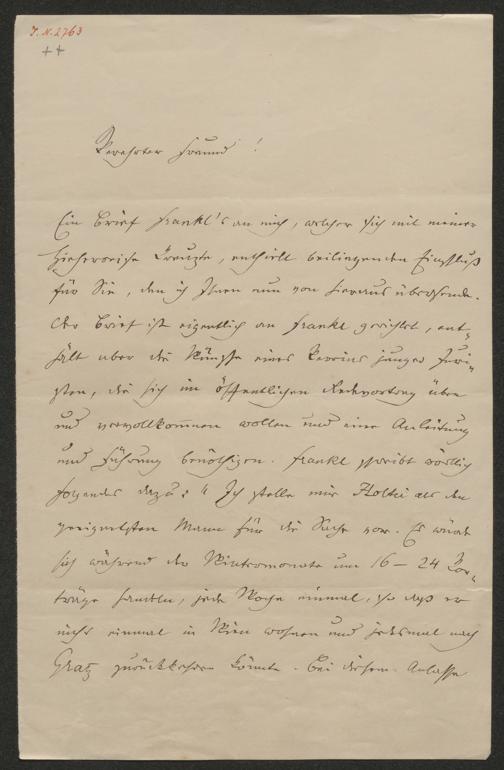 I. N. 2763
++
Verehrter Freund!
Ein Brief Frankl's an mich, welcher sich mit meiner
Hieherreise kreuzte, enthielt beiliegenden Einschluß
für Sie, den ich Ihnen nun von hieraus übersende.
Der Brief ist eigentlich an Frankl gerichtet, ent-
hält aber die Wünsche eines Vereins junger Juri-
sten, die sich im öffentlichen Redevortrag üben
und vervollkommnen wollen und eine Anleitung
und Führung benöthigen. Frankl schreibt wörtlich
folgendes dazu: "Ich stelle mir Holtei als den
geeignetsten Mann für die Sache vor. Es würde
sich während der Wintermonate um 16 – 24 Vor-
träge handeln, jede Woche einmal, so daß er
nicht einmal in Wien wohnen und jedesmal nach
Gratz zurückkehren könnte. Bei diesem Anlasse